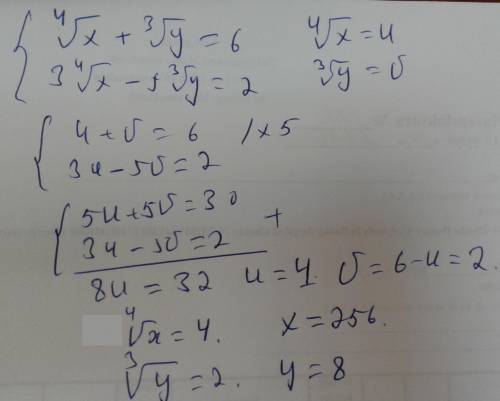 { ⁴√x + ³√y = 6    ⁴√x = u
3 ⁴√x − 5 ³√y = 2    ³√y = v
{ u + v = 6 / × 5
3u − 5v = 2
{ 5u + 5v = 30 +
3u − 5v = 2
8u = 32    u = 4.    v = 6 − u = 2.
⁴√x = 4.    x = 256.
³√y = 2.    y = 8